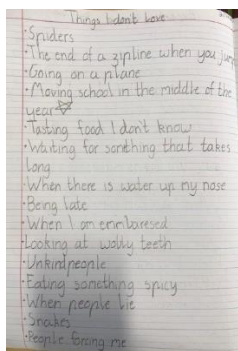 Things I don't Love
·Spiders
·The end of a zipline when you jump
·Going on a plane
·Moving school in the middle of the
year☆
·Tasting food I don't know
·Waiting for somthing that takes
long
·When there is water up my nose
·Being late
·When I am emmbaresed
·Looking at wobly teeth
·Unkind people
·Eating something spicy
·When people lie
·Snakes
·People forcing me